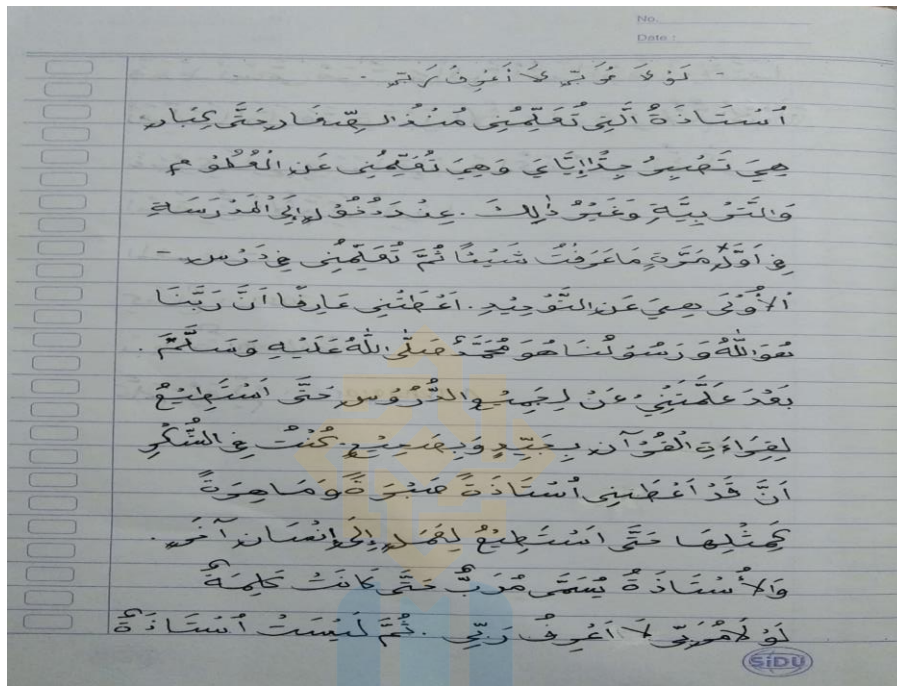 No.
Date :
- لَوْلَا مُرَبِّ لَا أَعْرِفُ رَبِّ -
أُسْتَاذَةُ الَّتِي تُعَلِّمُنِي مُنْذُ الصِّغَارِ حَتَّى كِبَارِ
هِيَ تَصْبِرُ جِدًّا إِيَّايَ وَهِيَ تُعَلِّمُنِي عَنِ الْعُلُوْمِ
وَالتَّرْبِيَّةِ وَغَيْرُ ذٰلِكَ . عِنْدَ دُخُوْلِ إِلَى الْمَدْرَسَةِ
فِي اَوَّلِ مَرَّةٍ مَا عَرَفْتُ شَيْئًا ثُمَّ تُعَلِّمُنِي فِي دَرْسِ -
اْلأُوْلَى هِيَ عَنِ التَّوْحِيْدِ . اَعْطَتْنِي عَارِفًا اَنَّ رَبَّنَا
هُوَ اللّٰهُ وَ رَسُوْلُنَا هُوَ مُحَمَّدٌ صَلَّى اللّٰهُ عَلَيْهِ وَسَلَّمَ .
بَعْدَ عَلَّمَتْنِيْ عَنْ لِجَمِيْعِ الدُّرُوْسِ حَتَّى اَسْتَطِيْعُ
لِقِرَاءَةِ الْقُرْآنِ بِجَيِّدٍ وَبِصَحِيْحٍ. كُنْتُ فِي الشُّكْرِ
اَنَّ قَدْ اَعْطَنِي اُسْتَاذَةً صَبْرَةً وَمَاهِرَةً
كَمِثْلِهَا حَتَّى اَسْتَطِيْعُ لِعَمَلِ إِلَى إِنْسَانِ آخَرٍ .
وَالأُسْتَاذَةُ يُسَمَّى مُرَبٌّ حَتَّى كَانَتْ كَلِمَةٌ
لَوْ لَا مُرَبِّي لَا اَعْرِفُ رَبِّي . ثُمَّ لَيْسَتْ اُسْتَاذَةٌ
SIDU